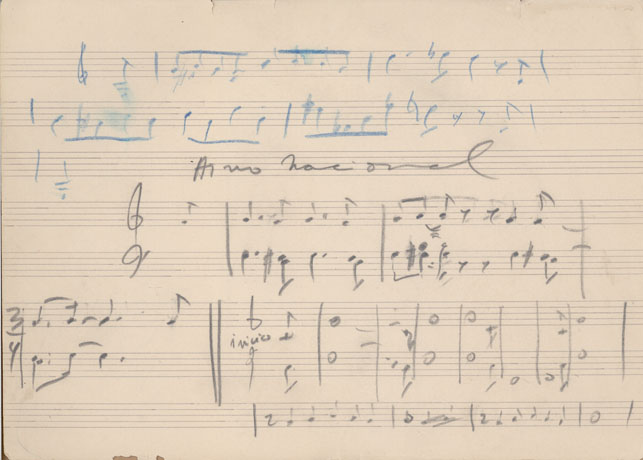 Hino Nacional
3/4
inicio
2 2